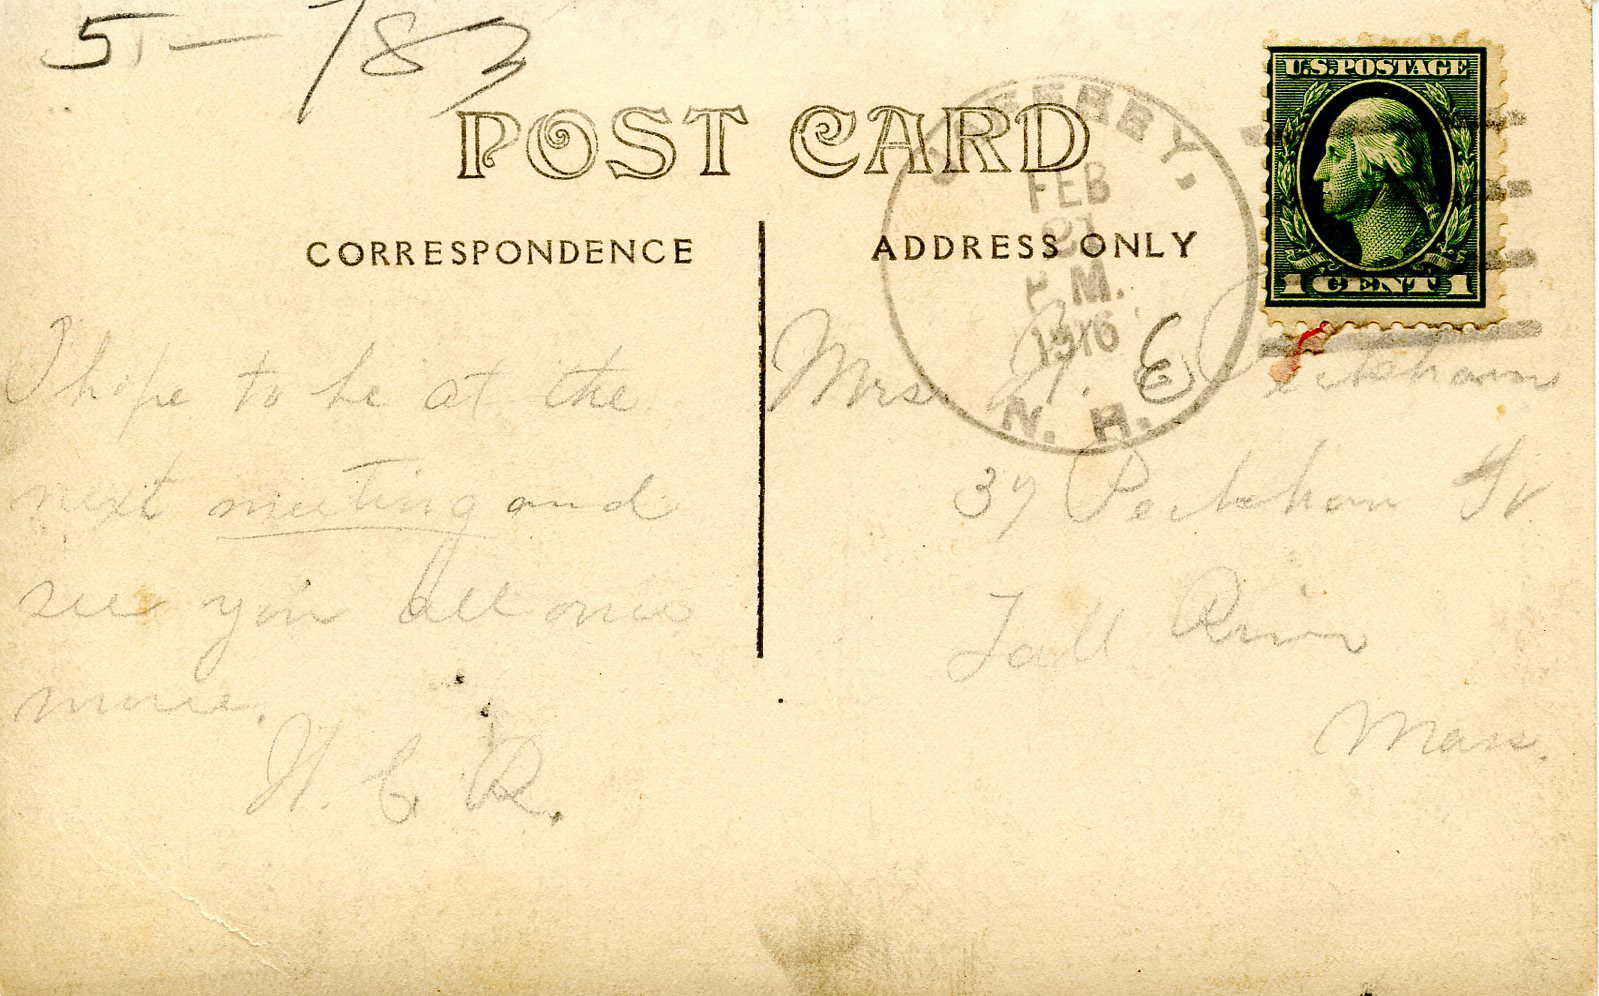 5 - 783
POST CARD
CORRESPONDENCE
ADDRESS ONLY
FEB
21
P M.
1916
N. H.
U.S. POSTAGE
1 CENT 1
I hope to be at the
next meeting and
see you all once
more.
H. C. R.
Mrs. G. E Peckham
37 Peckham St
Fall River
Mass.